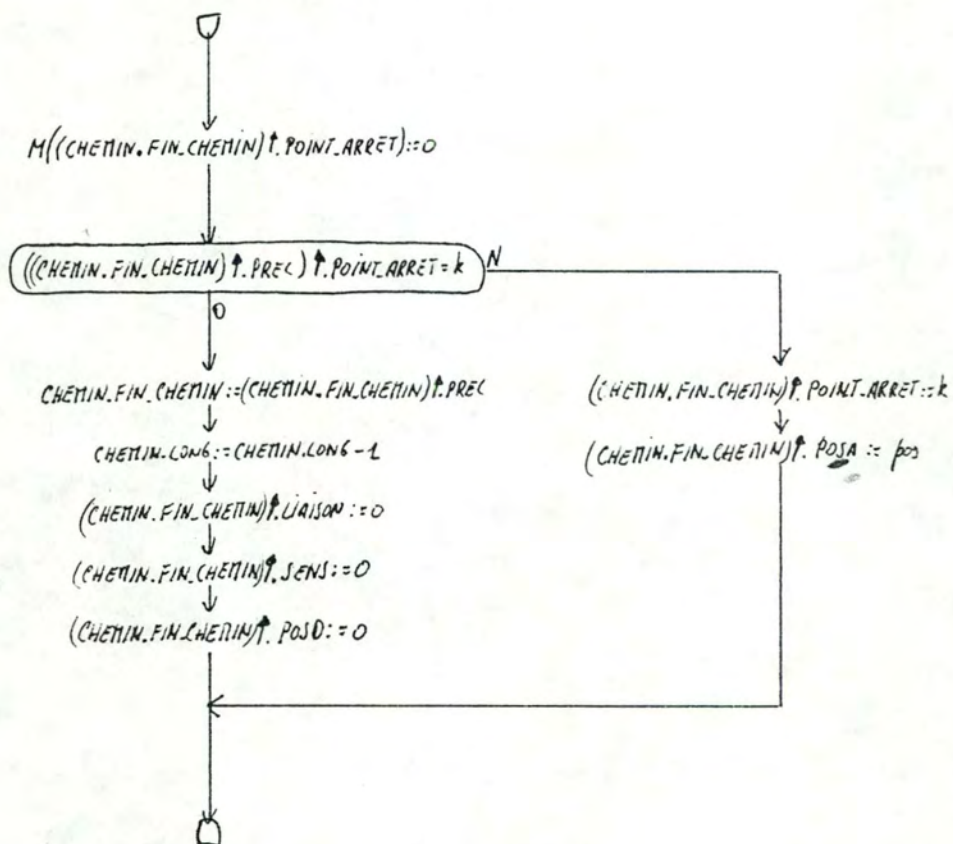 M((CHEMIN.FIN_CHEMIN)↑.POINT_ARRET):=0
(((CHEMIN.FIN_CHEMIN)↑.PREC)↑.POINT_ARRET=k
N
O
CHEMIN.FIN_CHEMIN:=(CHEMIN.FIN_CHEMIN)↑.PREC
CHEMIN.LONG:=CHEMIN.LONG-1
(CHEMIN.FIN_CHEMIN)↑.LIAISON:=0
(CHEMIN.FIN_CHEMIN)↑.SENS:=0
(CHEMIN.FIN_CHEMIN)↑.POSD:=0
(CHEMIN.FIN_CHEMIN)↑.POINT_ARRET:=k
(CHEMIN.FIN_CHEMIN)↑.POSA:=pos